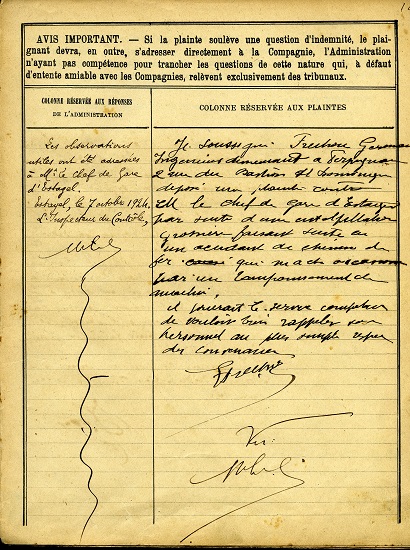 AVIS IMPORTANT. — Si la plainte soulève une question d'indemnité, le plai-
gnant devra, en outre, s'adresser directement à la Compagnie, l'Administration
n'ayant pas compétence pour trancher les questions de cette nature qui, à défaut
d'entente amiable avec les Compagnies, relèvent exclusivement des tribunaux.
COLONNE RÉSERVÉE AUX RÉPONSES
DE L'ADMINISTRATION
Les observations
utiles ont été adressées
à Mr le Chef de Gare
d'Estagel.
Estagel, le 7 octobre 1924.
L'Inspecteur du Contrôle,
COLONNE RÉSERVÉE AUX PLAINTES
Je soussigné
Ingénieur demeurant à Perpignan
2 rue du Bastion St Dominique
dépose une plainte contre
M le chef de gare d'Estagel
par suite d'une
grossière faisant suite à
un accident de chemin de
fer qui m'a été occasionné
par un tamponnement de
machine,
de vouloir bien rappeler son
personnel au plus simple respect
des convenances
Vu :